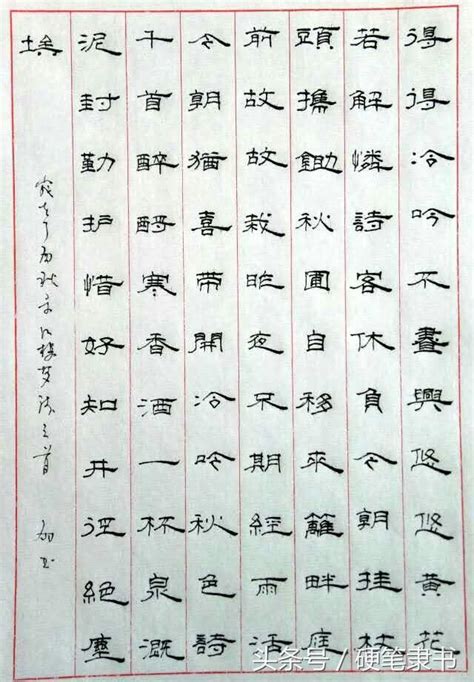 得得冷吟不盡興悠悠黃花
若解憐詩客休負今朝挂杖
頭攜鋤秋圃自移來籬畔庭
前故故栽昨夜不期經雨活
今朝猶喜帶開冷吟秋色詩
千首醉酹寒香酒一杯泉溉
泥封勤护惜好知井逕絕塵
埃
头条号／硬笔隶书